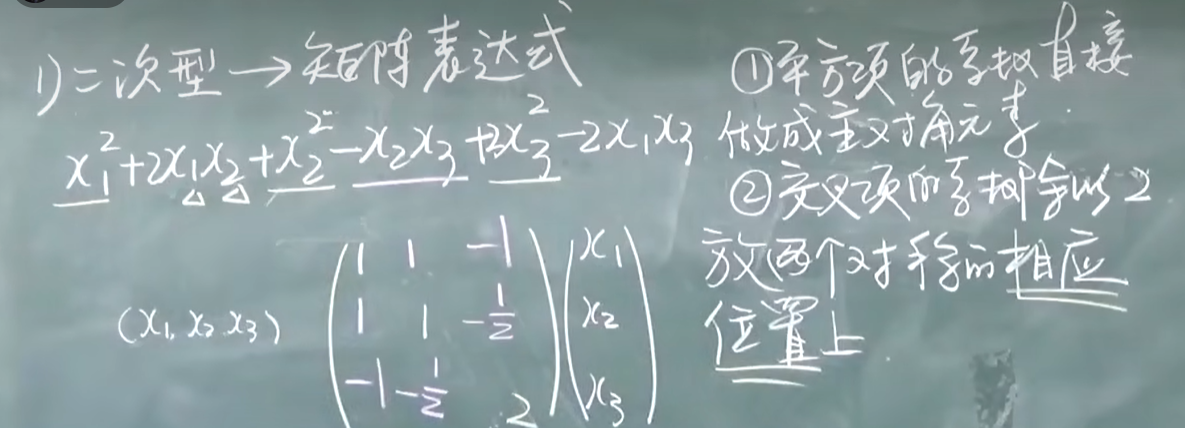 1) 二次型 → 矩阵表达式
x₁² + 2x₁x₂ + x₂² - x₂x₃ + 2x₃² - 2x₁x₃
(x₁, x₂ x₃) ( 1 1 -1 ) ( x₁ )
1 1 -1/2 x₂
-1 -1/2 2 x₃
①平方项的系数直接
做成主对角元素.
②交叉项的系数除以2
放两个对称的相应
位置上.